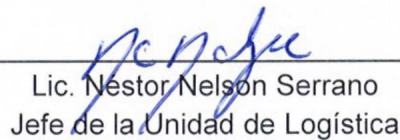 Lic. Néstor Nelson Serrano
Jefe de la Unidad de Logística